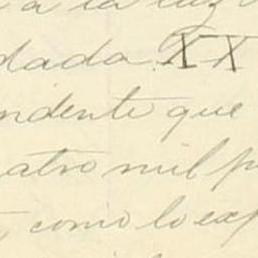 a la luz
dada. XX
ndente que
atro mil p
, como lo exp